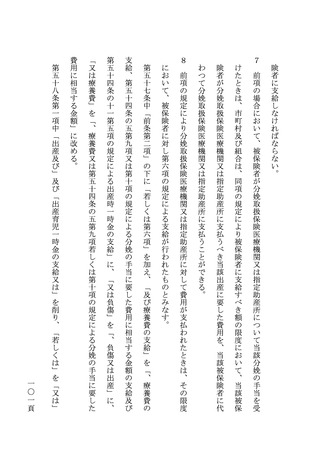 険者に支給しなければならない。
７　前項の場合において、被保険者が分娩取扱保険医療機関又は指定助産所について当該分娩の手当を受
けたときは、市町村及び組合は、同項の規定により被保険者に支給すべき額の限度において、当該被保
険者が分娩取扱保険医療機関又は指定助産所に支払うべき当該出産に要した費用を、当該被保険者に代
わつて分娩取扱保険医療機関又は指定助産所に支払うことができる。
８　前項の規定により分娩取扱保険医療機関又は指定助産所に対して費用が支払われたときは、その限度
において、被保険者に対し第六項の規定による支給が行われたものとみなす。
第五十七条中「前条第二項」の下に「若しくは第六項」を加え、「及び療養費の支給」を「、療養費の
支給、第五十四条の五第九項又は第十項の規定による分娩の手当に要した費用に相当する金額の支給及び
第五十四条の十一第五項の規定による出産時一時金の支給」に、「又は負傷」を「、負傷又は出産」に、
「又は療養費」を「、療養費又は第五十四条の五第九項若しくは第十項の規定による分娩の手当に要した
費用に相当する金額」に改める。
第五十八条第一項中「出産及び」及び「出産育児一時金の支給又は」を削り、「若しくは」を「又は」
一〇一頁